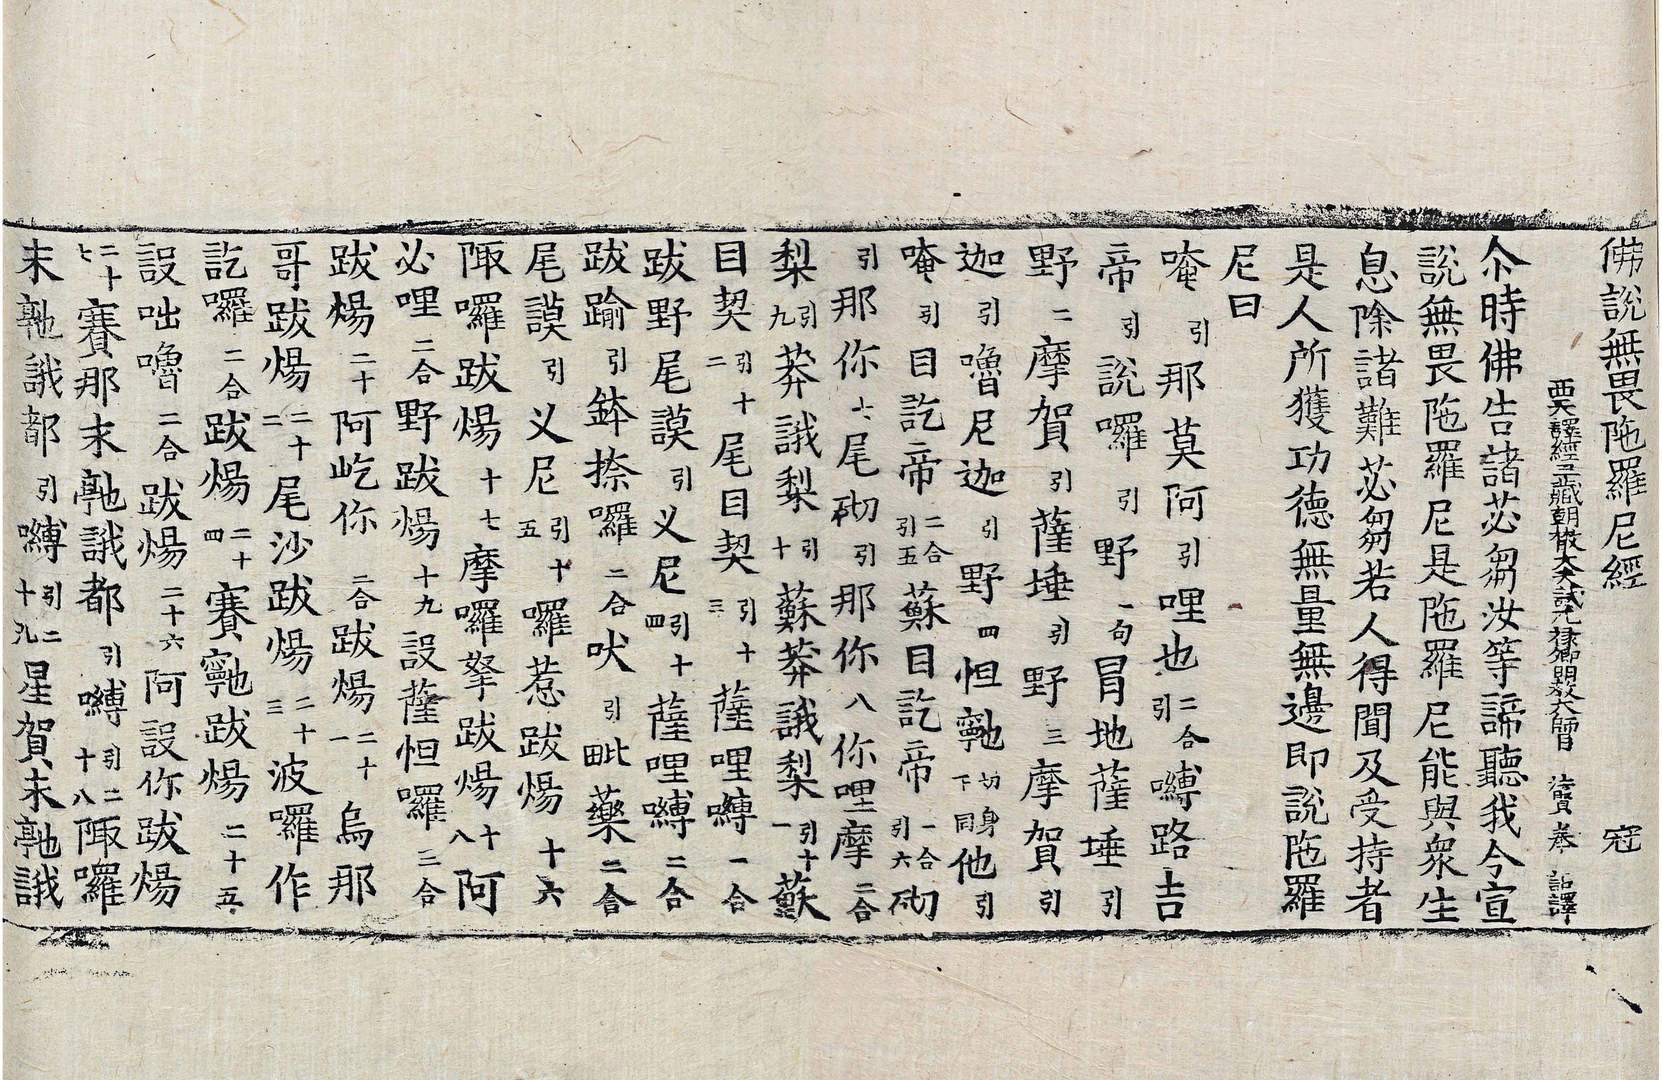 佛說無畏陁羅尼經　冦
西天譯經三藏朝散大夫試光祿卿明教大師臣　法賢奉　詔譯
尒時佛告諸苾芻汝等諦聽我今宣
說無畏陁羅尼是陁羅尼能與衆生
息除諸難苾芻若人得聞及受持者
是人所獲功德無量無邊即說陁羅
尼曰
唵引那莫阿引哩也二合引嚩路吉
帝引說囉引野一句冐地薩埵引
野二摩賀引薩埵引野三摩賀引
迦引嚕尼迦引野四怛𩕳切身下同他引
唵引目訖帝二合引五蘇目訖帝二合引六砌
引那你七尾砌引那你八你哩摩二合
梨引九莽誐梨引十蘇莽誐梨引十一蘇
目契引十二尾目契引十三薩哩嚩二合
跋野尾謨引义尼引十四薩哩嚩二合
跋踰引鉢捺囉二合吠引毗藥二合
尾謨引义尼引十五囉惹跋煬十六
陬囉跋煬十七摩囉拏跋煬十八阿
必哩二合野跋煬十九設薩怛囉三合
跋煬二十阿屹你二合跋煬二十一烏那
哥跋煬二十二尾沙跋煬二十三波囉作
訖囉二合跋煬二十四賽𩕳跋煬二十五
設咄嚕二合跋煬二十六阿設你跋煬
二十七賽那末𩕳誐都引嚩引二十八陬囉
末𩕳誐都引嚩引二十九星賀末𩕳誐